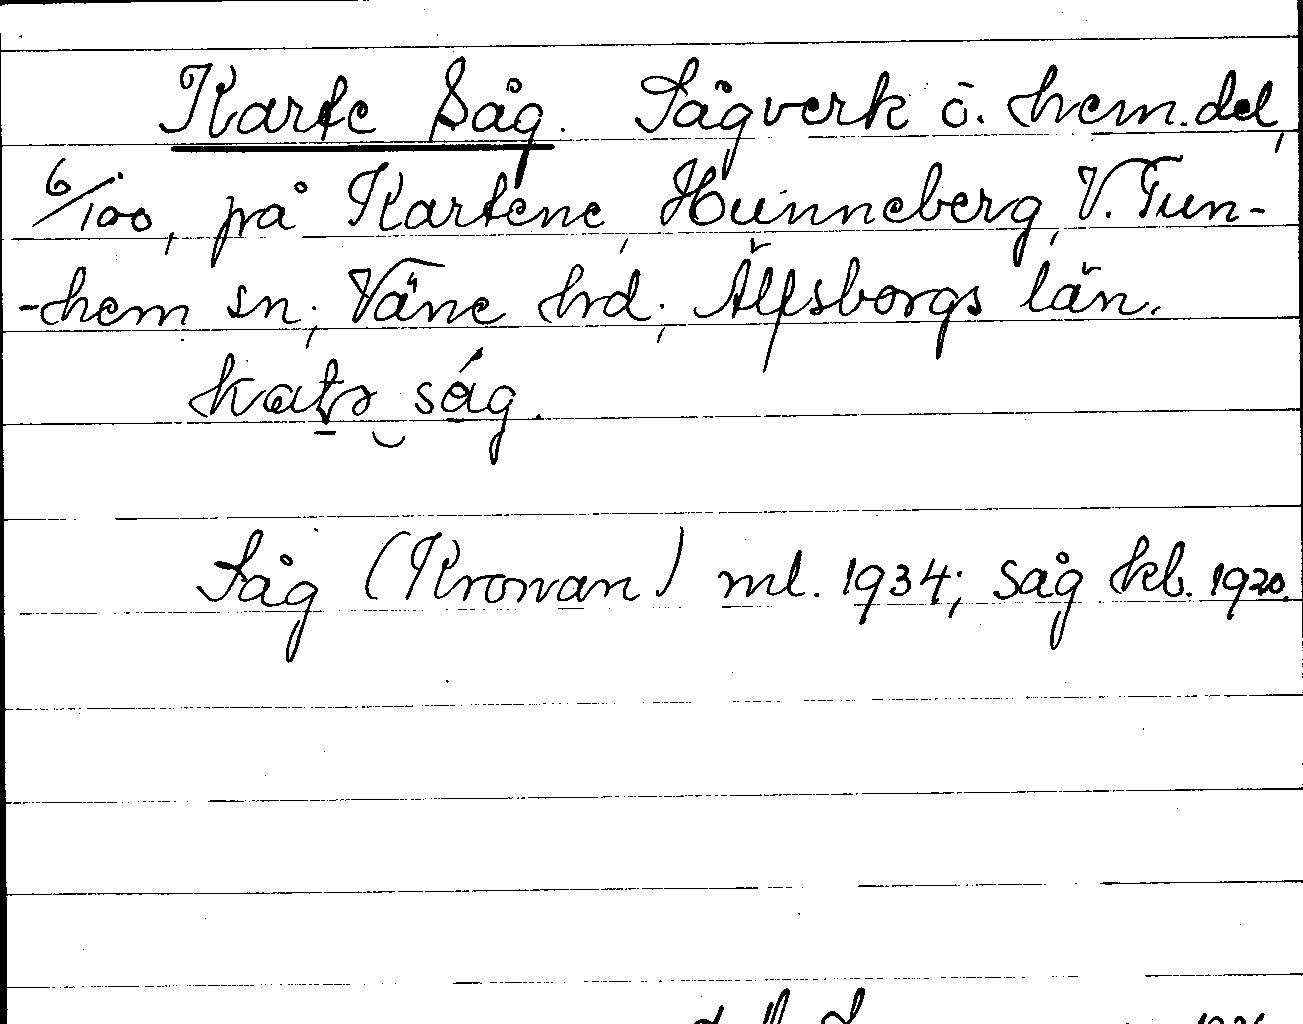 Karte Såg. Sågverk o. hem.del,
6/100, på Kartene, Hunneberg, V. Tun-
-hem sn; Väne hd; Älfsborgs län.
såg.
Såg (Kronan) ml. 1934; såg kb. 1920.